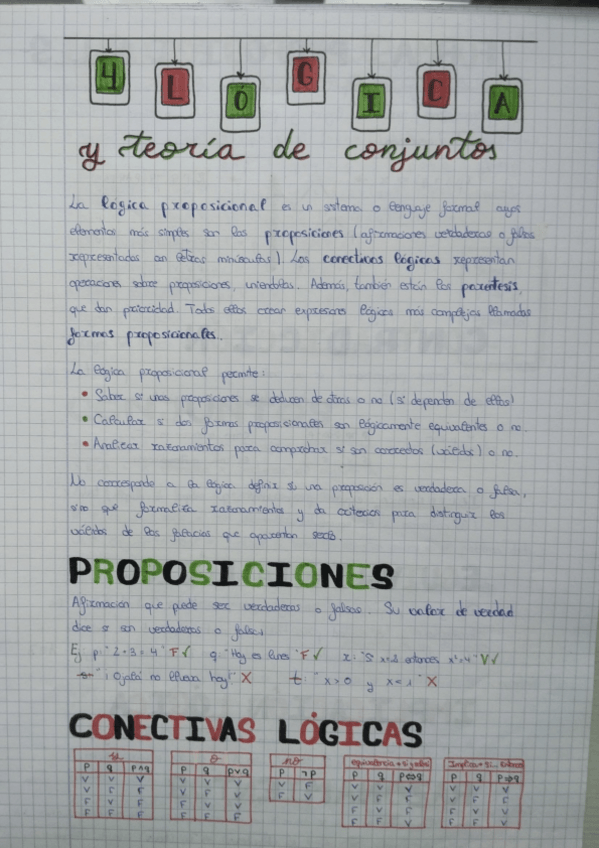 4 LÓGICA
y teoría de conjuntos
La lógica proposicional es un sistema o lenguaje formal cuyos
elementos más simples son las proposiciones (afirmaciones verdaderas o falsas
representadas con letras minúsculas). Las conectivas lógicas representan
operaciones sobre proposiciones, uniendolas. Además, también están los parentesis,
que dan prioridad. Todos ellos crean expresiones lógicas más complejas llamadas
formas proposicionales.
La lógica proposicional permite:
• Saber si unas proposiciones se deducen de otras o no (si dependen de ellas)
• Calcular si dos formas proposicionales son lógicamente equivalentes o no.
• Analizar razonamientos para comprobar si son correctos (válidos) o no.
No corresponde a la lógica definir si una proposición es verdadera o falsa,
sino que formaliza razonamientos y da criterios para distinguir los
válidos de las falacias que aparentan serlo.
PROPOSICIONES
Afirmación que puede ser verdaderas o falsas. Su valor de verdad
dice si son verdaderas o falsas
Ej p: "2+3=4" F✓ q: "Hoy es lunes" F✓ r: "Si x=2 entonces x²=4" V✓
"¡Ojalá no llueva hoy!" X t: "x>0 y x<1" X
CONECTIVAS LÓGICAS
y o no
p q p∧q p q p∨q p ¬p p q p⇔q p q p⇒q